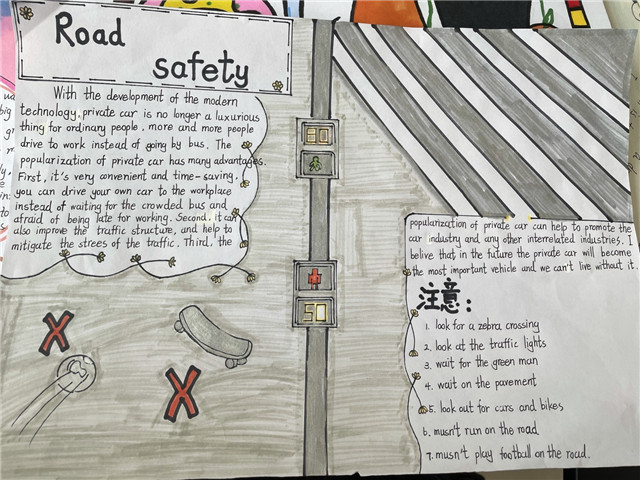 Road
safety
With the development of the modern
technology, private car is no longer a luxurious
thing for ordinary people, more and more people
drive to work instead of going by bus. The
popularization of private car has many advantages.
First, it's very convenient and time-saving,
you can drive your own car to the workplace
instead of waiting for the crowded bus and
afraid of being late for working. Second, it can
also improve the traffic structure, and help to
mitigate the strees of the traffic. Third, the
80
50
popularization of private car can help to promote the
car industry and any other interrelated industries. I
belive that in the future the private car will become
the most important vehicle and we can't live without it.
注意:
1. look for a zebra crossing
2. look at the traffic lights
3. wait for the green man
4. wait on the pavement
5. look out for cars and bikes
6. musn't run on the road
7. musn't play football on the road.